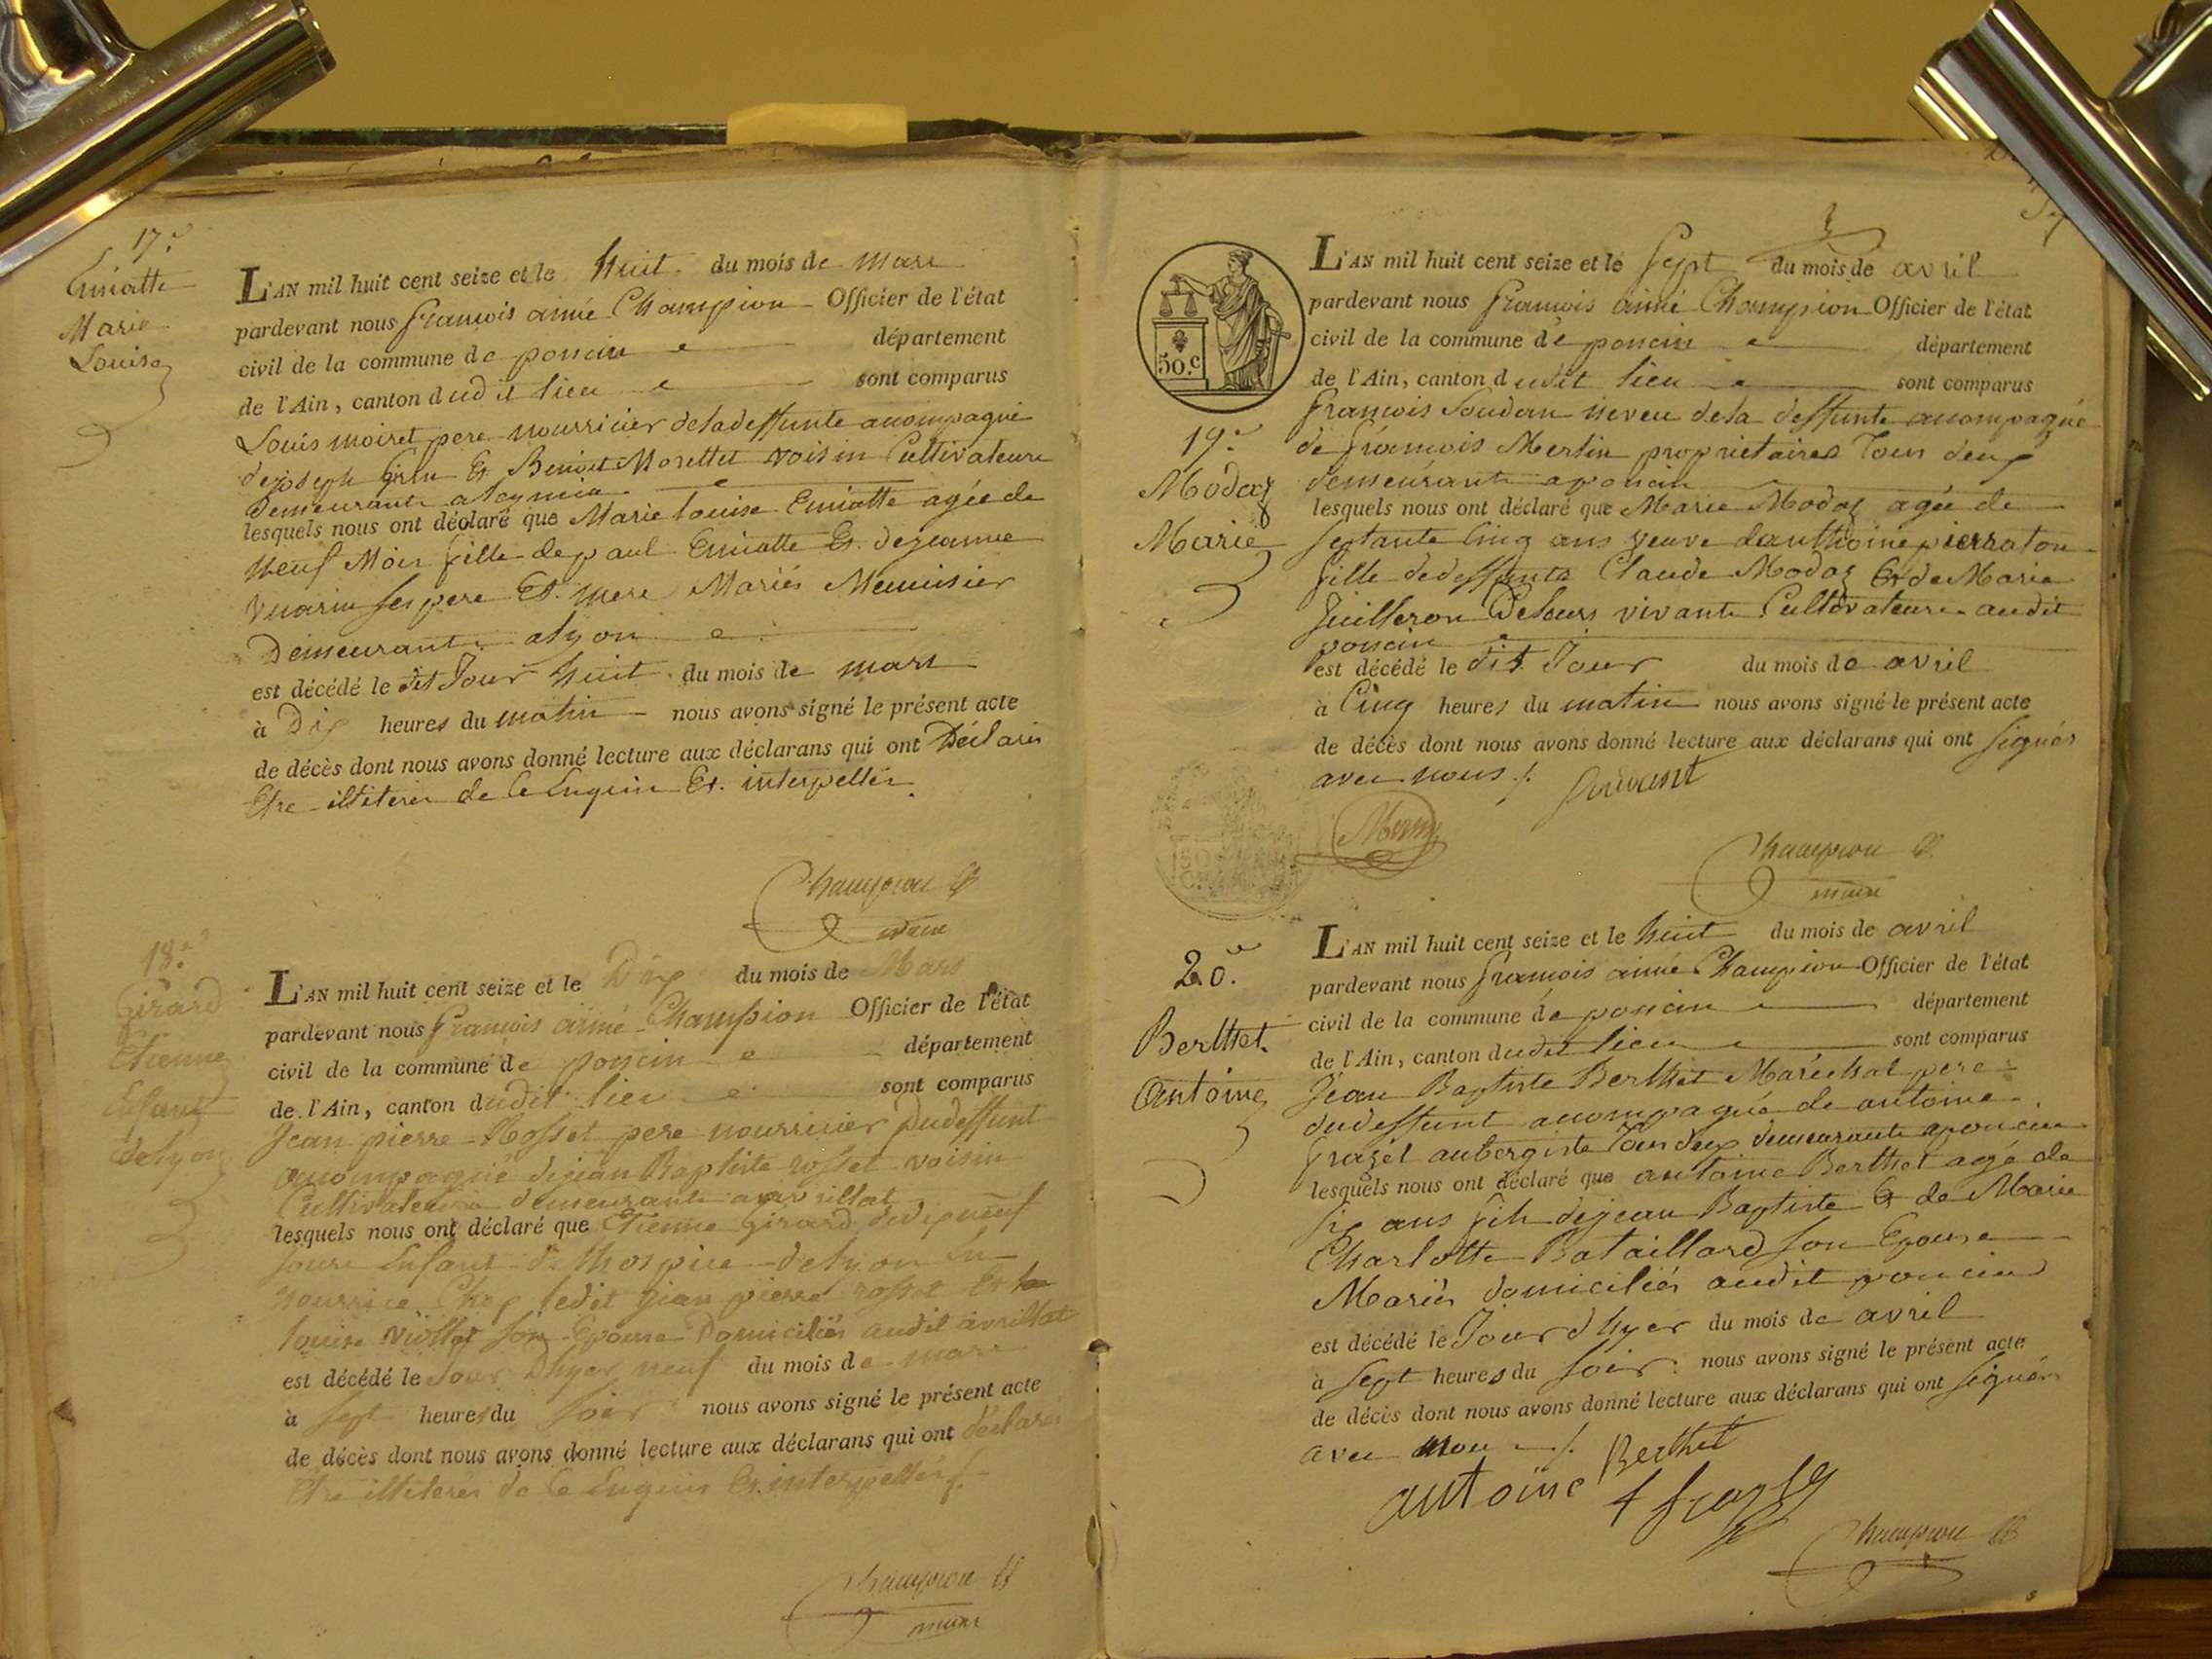 17.e
Emiatte
Marie
Louise
L'AN mil huit cent seize et le huit du mois de mars
pardevant nous françois aimé Champion Officier de l'état
civil de la commune de poncin département
de l'Ain, canton dudit lieu sont comparus
Louis moiret pere nourricier de la deffunte acompagné
de joseph Et Benoit Morettet voisin Cultivateurs
Demeurants a
lesquels nous ont déclaré que Marie Louise Emiatte agée de
neuf Mois fille de paul Emiatte Et de jeanne
vuarin ses pere Et mere Mariés Menuisier
Demeurants a lyon
est décédé le dit Jour huit du mois de mars
à Dix heures du matin nous avons signé le présent acte
de décès dont nous avons donné lecture aux déclarans qui ont Déclarés
Etre illiterés de Ce Enquis Et interpellés
Champion
maire
18.e
Girard
Etienne
Enfant
de lyon
L'AN mil huit cent seize et le Dix du mois de Mars
pardevant nous françois aimé Champion Officier de l'état
civil de la commune de poncin département
de l'Ain, canton dudit lieu sont comparus
Jean pierre Rosset pere nourricier Dudeffunt
acompagné de jean Baptiste rosset voisin
Cultivateurs demeurants a avrillat
lesquels nous ont déclaré que Etienne Girard de dix neuf
jours Enfant de l'hospice de lyon En
nourrice Chez ledit jean pierre rosset Et
louise viollet son Epouse Domiciliés audit avrillat
est décédé le Jour Dhyer neuf du mois de mars
à sept heures du soir nous avons signé le présent acte
de décès dont nous avons donné lecture aux déclarans qui ont déclarés
Etre illiterés de Ce Enquis Et interpellés
Champion
maire
50.c
19.e
Modaz
Marie
L'AN mil huit cent seize et le sept du mois de avril
pardevant nous françois aimé Champion Officier de l'état
civil de la commune de poncin département
de l'Ain, canton dudit lieu sont comparus
françois Soudan neveu de la deffunte acompagné
de françois Merlin propriétaires Tous deux
demeurants a poncin
lesquels nous ont déclaré que Marie Modaz agée de
septante Cinq ans veuve danthoine pierraton
fille de deffunts Claude Modaz Et de Marie
Guilleron De leurs vivants Cultivateurs audit
poncin
est décédé le dit Jour du mois de avril
à Cinq heures du matin nous avons signé le présent acte
de décès dont nous avons donné lecture aux déclarans qui ont signés
avec nous
Champion
maire
20.e
Berthet
Antoine
L'AN mil huit cent seize et le huit du mois de avril
pardevant nous françois aimé Champion Officier de l'état
civil de la commune de poncin département
de l'Ain, canton dudit lieu sont comparus
Jean Baptiste Berthet Maréchal pere
dudeffunt acompagné de antoine
frazet aubergiste Tous deux demeurants a poncin
lesquels nous ont déclaré que antoine Berthet agé de
six ans fils de jean Baptiste Et de Marie
Charlotte Bataillard son Epouse
Mariés domiciliés audit poncin
est décédé le Jour d'hyer du mois de avril
à sept heures du soir nous avons signé le présent acte
de décès dont nous avons donné lecture aux déclarans qui ont signés
avec nou
Berthet
antoine
Champion